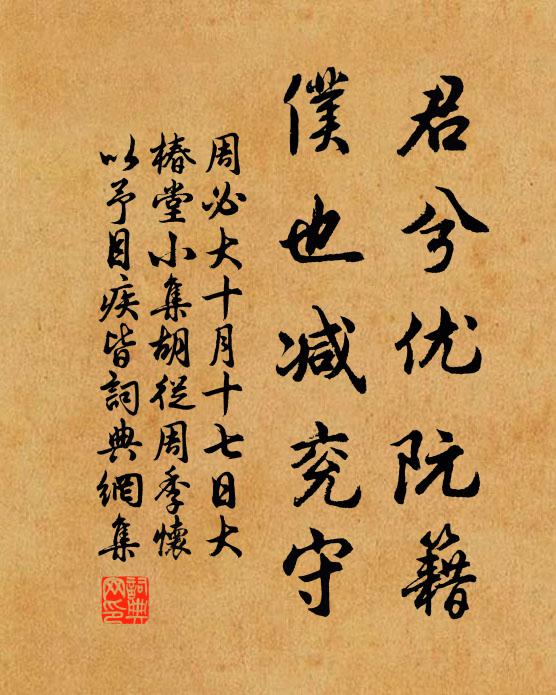 君兮优阮籍
僕也减兖守
周必大十月十七日大
椿堂小集胡從周季懷
以予目疾皆詞典網集